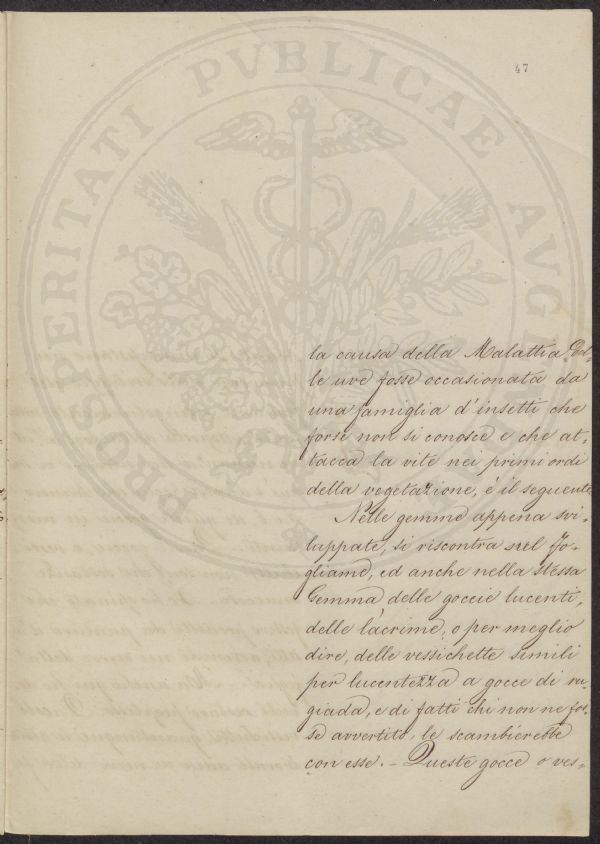 47
PROSPERITATI PVBLICAE AVGENDAE
la causa della Malattia Del-
le uve fosse occasionata da
una famiglia d'insetti che
forse non si conosce e che at-
tacca la vite nei primi ordi
della vegetazione, é il seguente
Nelle gemme appena svi-
luppate, si riscontra nel fo-
gliame, ed anche nella stessa
Gemma delle goccie lucenti,
delle lacrime, o per meglio
dire, delle vessichette simili
per lucentezza a gocce di ru-
giada, e di fatti chi non ne fos-
se avvertito, le scambierebbe
con esse. - Queste gocce o ves-